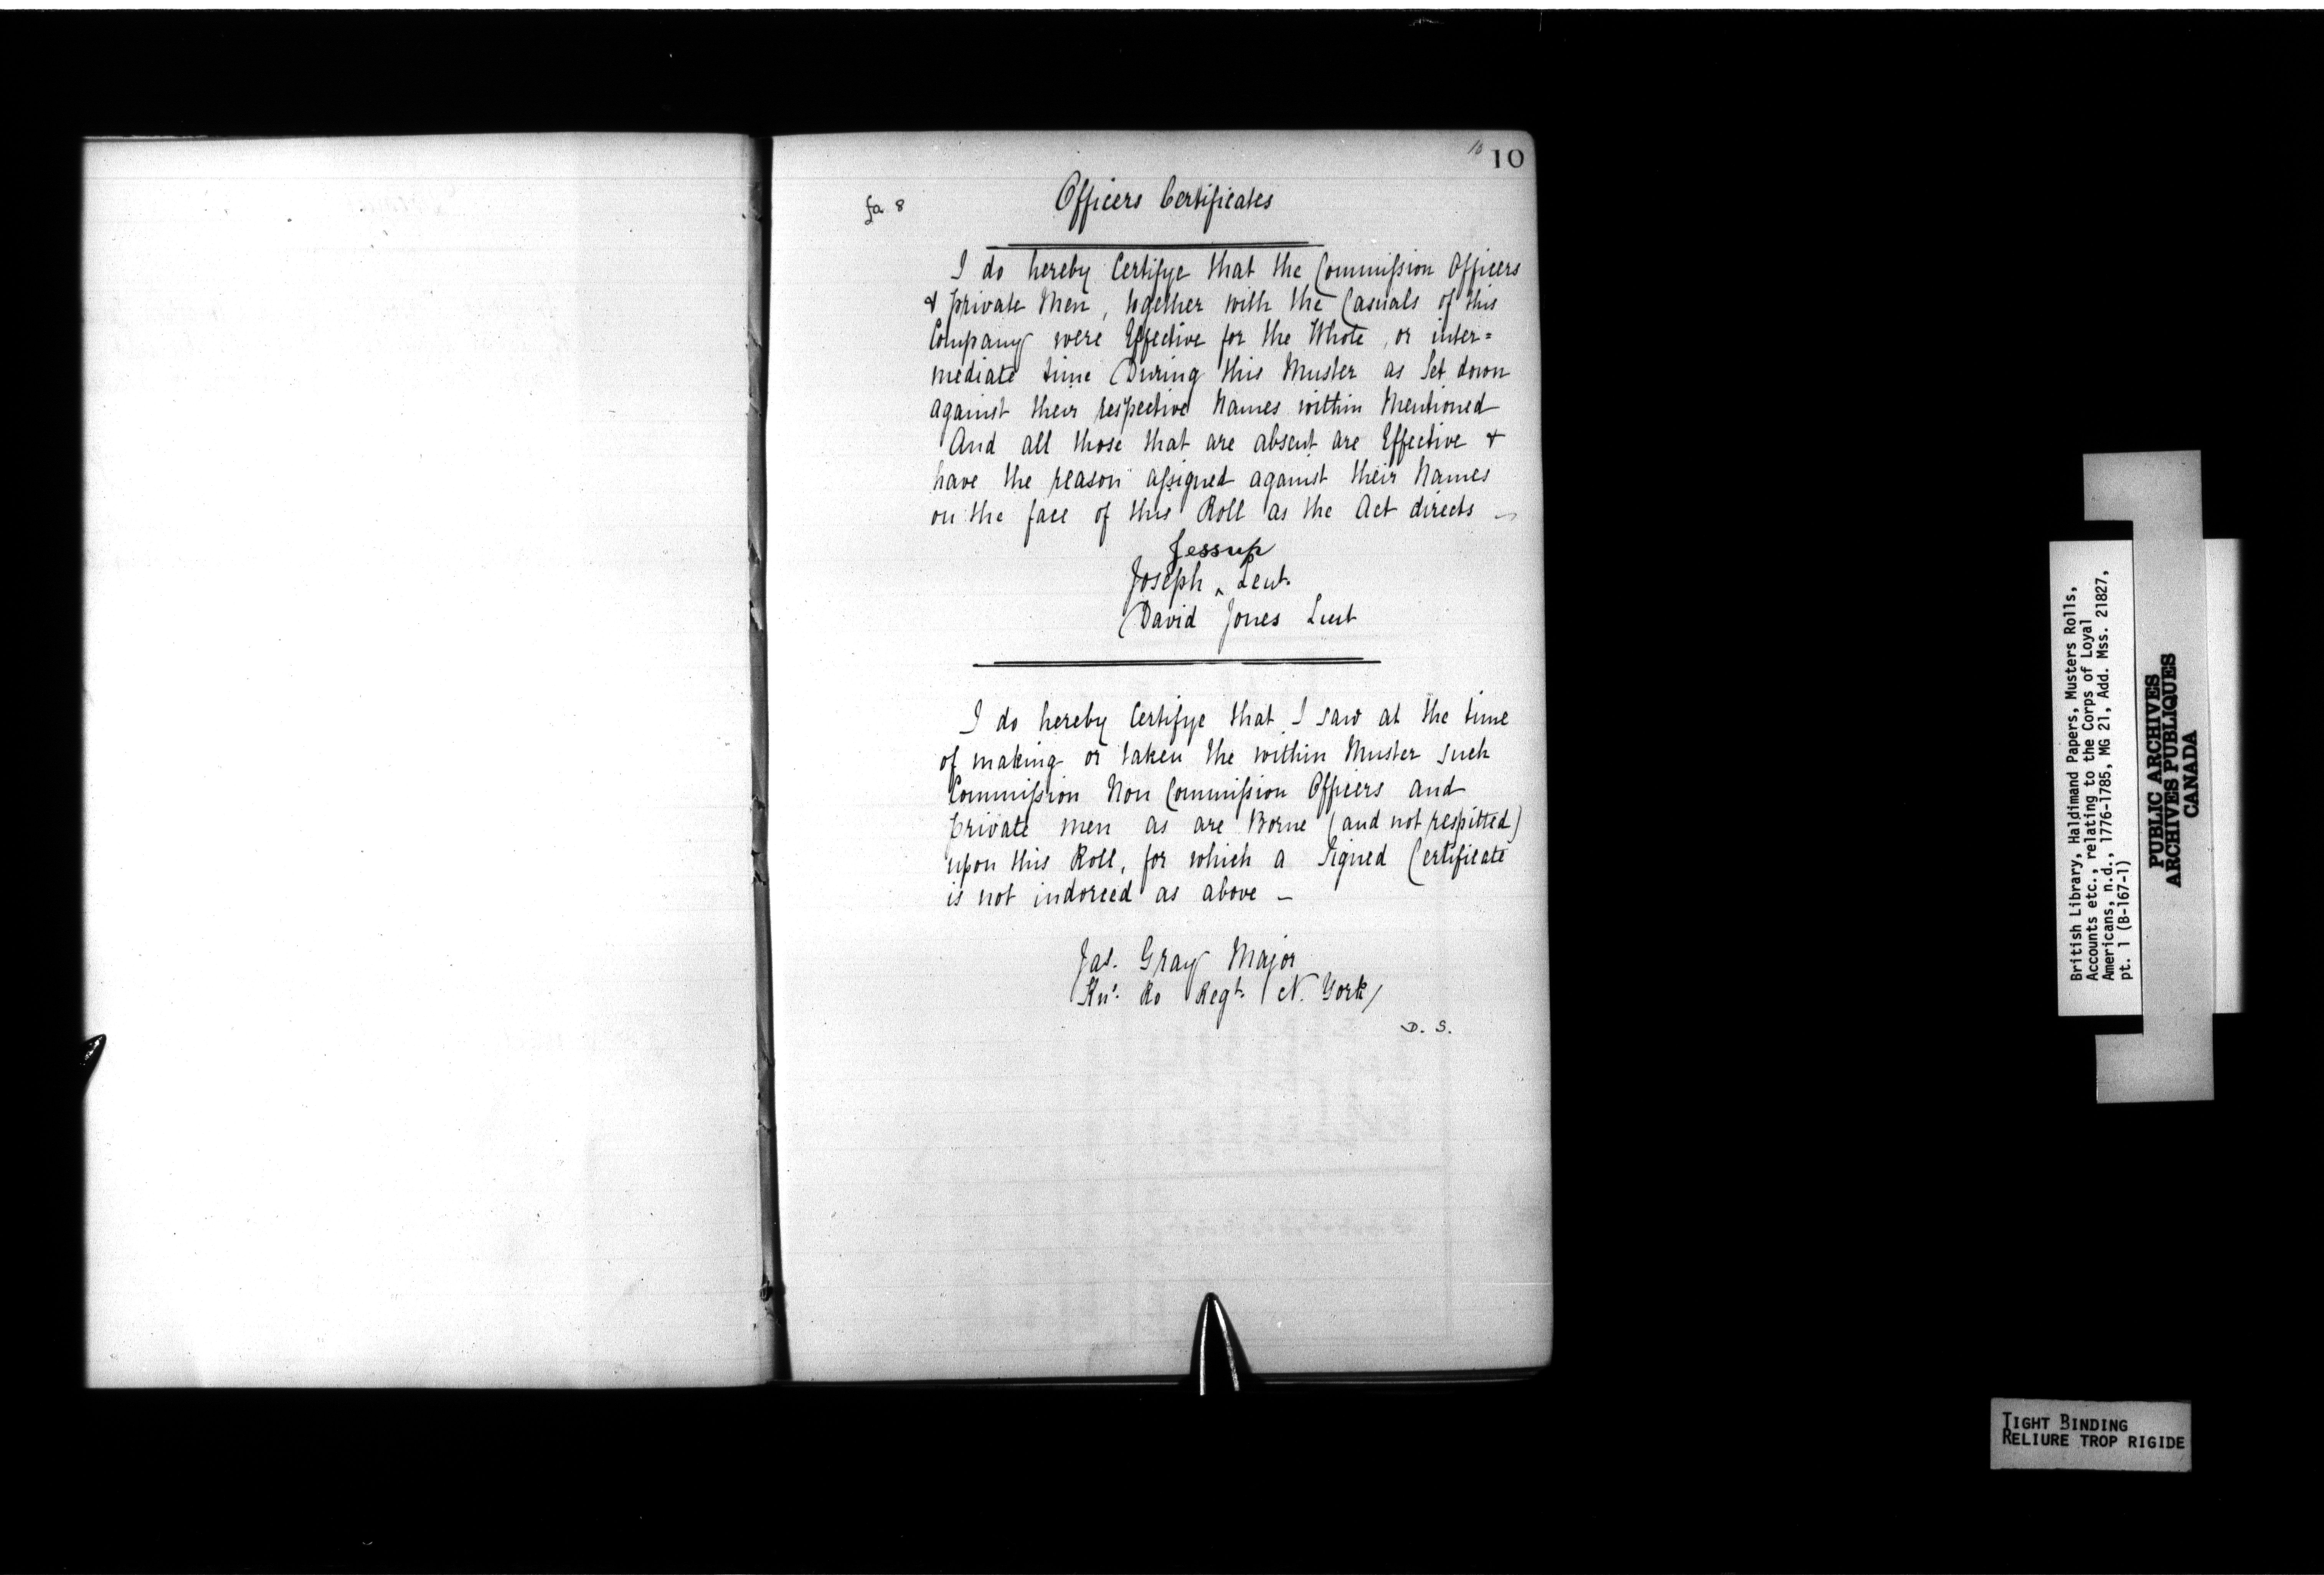 10 10
fo. 8
Officers Certificates
I do hereby Certifye that the Commission Officers
& private Men, together with the Casuals of this
Company were Effective for the Whole, or inter=
mediate time During this Muster as Set down
against their respective Names within Mentioned
And all those that are absent are Effective &
have the reason assigned against their Names
on the face of this Roll as the Act directs —
Jessup
Joseph ‸ Leut.
David Jones Lieut
I do hereby Certifye that I saw at the time
of making or taken the within Muster such
Commission Non Commission Officers and
private men as are Borne (and not respitted)
upon this Roll, for which a Signed Certificate
is not indorced as above —
Jas. Gray Major
Ro Regt. N. York
D. S.
British Library, Haldimand Papers, Musters Rolls,
Accounts etc., relating to the Corps of Loyal
Americans, n.d., 1776-1785, MG 21, Add. Mss. 21827,
pt. 1 (B-167-1)
PUBLIC ARCHIVES
ARCHIVES PUBLIQUES
CANADA
TIGHT BINDING
RELIURE TROP RIGIDE